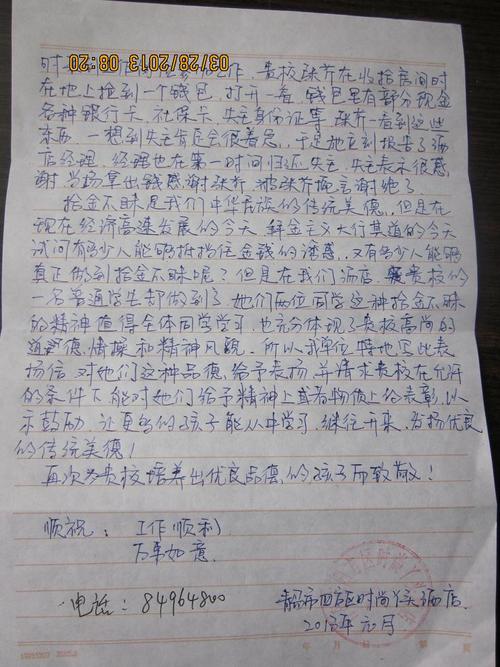 03/28/2013 08:20
工作，贵校陈乔在收拾房间时
在地上捡到一个钱包，打开一看，钱包里有部分现金
各种银行卡，社保卡，失主身份证等，陈乔一看到这些
东西，一想到失主肯定会很着急，于是她立刻报告了酒
店经理，经理也在第一时间归还失主，失主表示很感
谢，当场拿出钱感谢陈乔，被陈乔婉言谢绝了
拾金不昧是我们中华民族的传统美德，但是在
现在经济高速发展的今天，拜金主义大行其道的今天
试问有多少人能够抵挡住金钱的诱惑，又有多少人能够
真正做到拾金不昧呢？但是在我们酒店，贵校的
一名普通学生却做到了，她们两位同学这种拾金不昧
的精神值得全体同学学习，也充分体现了贵校高尚的
道德情操和精神风貌。所以我单位特地写此表
扬信，对她们这种品德给予表扬，并请求贵校在允许
的条件下能对她们给予精神上或者物质上的表彰，以
示鼓励，让更多的孩子能从中学习，继往开来，发扬优良
的传统美德！
再次为贵校培养出优良品德的孩子而致敬！
顺祝：工作顺利
万事如意
电话：84964800
青岛市四方区时尚丫头酒店
2013年元月
年 月 日